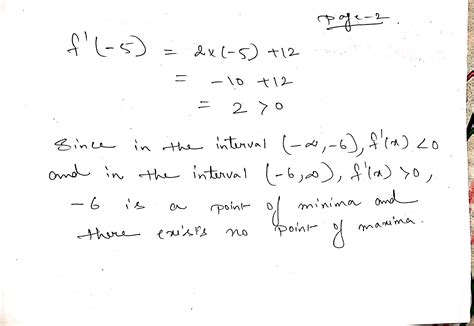 page-2.
f'(-5) = 2x(-5) +12
= -10 +12
= 2 >0
Since in the interval (-∞,-6), f'(x) <0
and in the interval (-6,∞), f'(x) >0,
-6 is a point of minima and
there exists no point of maxima.